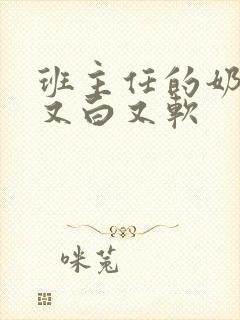 班主任的奶
又白又软
咪兔